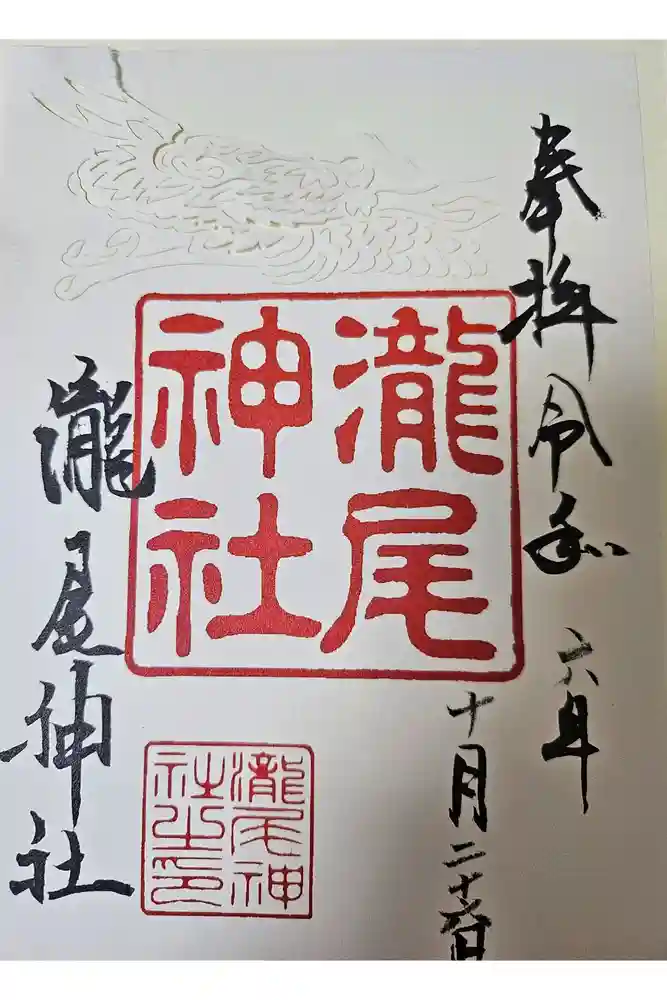 奉拝
令和六年
十月二十六日
瀧尾
神社
瀧尾神社
瀧尾神
社之印